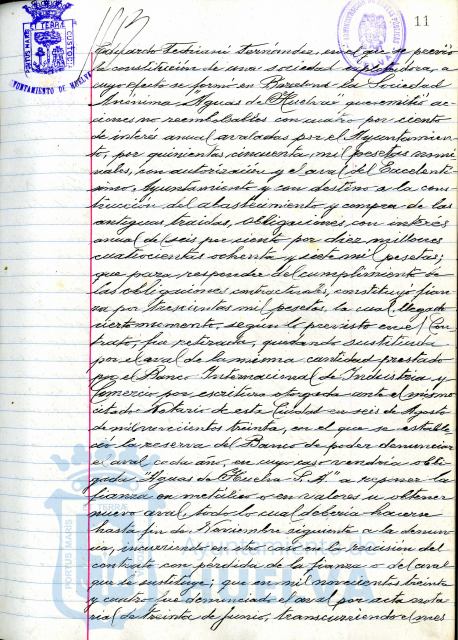 11
AYUNTAMIENTO DE HUELVA
PORTUS MARIS ET TERRAE CUSTODIA
Eduardo Fedriani Fernández, en el que se previó
la constitución de una sociedad explotadora, a
cuyo efecto se formó en Barcelona la Sociedad
Anónima Aguas de Huelva que emitió ac
ciones no reembolsables con cuatro por ciento
de interés anual avaladas por el Ayuntamien
to, por quinientas cincuenta mil pesetas nomi
nales, con autorización y el aval del Excelentí
simo Ayuntamiento y con destino a la cons
trucción del abastecimiento y compra de las
antiguas traidas, obligaciones con interés
anual de seis por ciento por diez millones
cuatrocientas ochenta y siete mil pesetas;
que para responder del cumplimiento de
las obligaciones contractuales, constituyó fian
za por trescientas mil pesetas la cual, llegado
cierto momento, según lo previsto en el Con
trato, fue retirada, quedando sustituida
por el aval de la misma cantidad prestado
por el Banco Internacional de Industria y
Comercio por escritura otorgada ante el mismo
citado Notario de esta Ciudad en seis de Agosto
de mil novecientos treinta, en el que se estable
ció la reserva del Banco de poder denunciar
el aval cada año, en cuyo caso vendría obli
gada "Aguas de Huelva S.A." a reponer la
fianza en metálico o en valores u obtener
nuevo aval, todo lo cual debería hacerse
hasta fin de Noviembre siguiente a la denun
cia, incurriendo en otro caso en la rescisión del
contrato con pérdida de la fianza o del aval
que la sustituye; que en mil novecientos treinta
y cuatro fue denunciado el aval por acta nota
rial de treinta de Junio, transcurriendo el mes
Ayuntamiento de
HUELVA